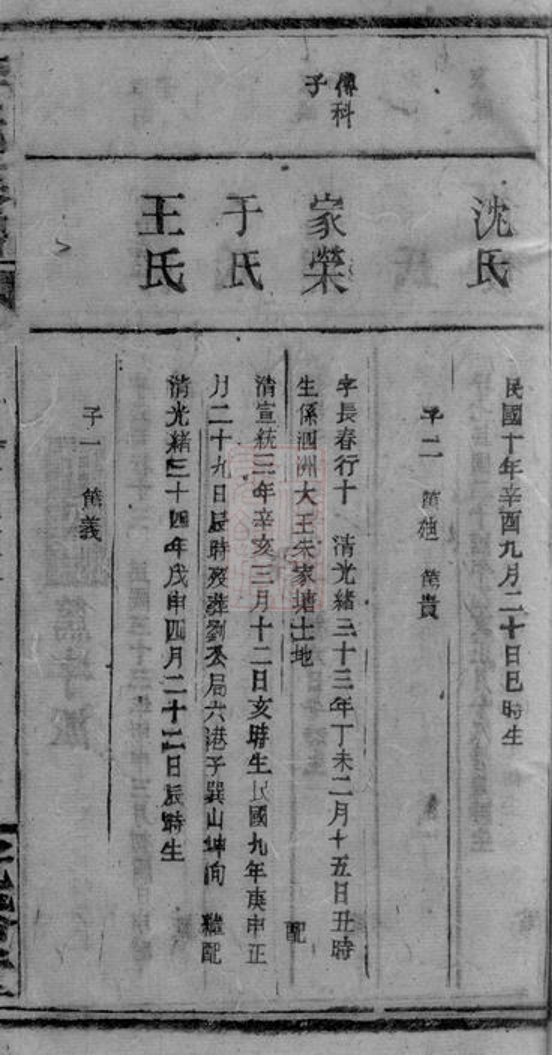 傳科
子
沈氏
家榮
于氏
王氏
民國十年辛酉九月二十日巳時生
子二
貴
字長春行十 清光緒三十三年丁未二月十五日丑時
生係泗洲大王朱家塘土地 配
清宣統三年辛亥三月十二日亥時生民國九年庚申正
月二十九日辰時歿葬劉公局六港子巽山坤向 繼配
清光緒三十四年戊申四月二十二日辰時生
子一 義